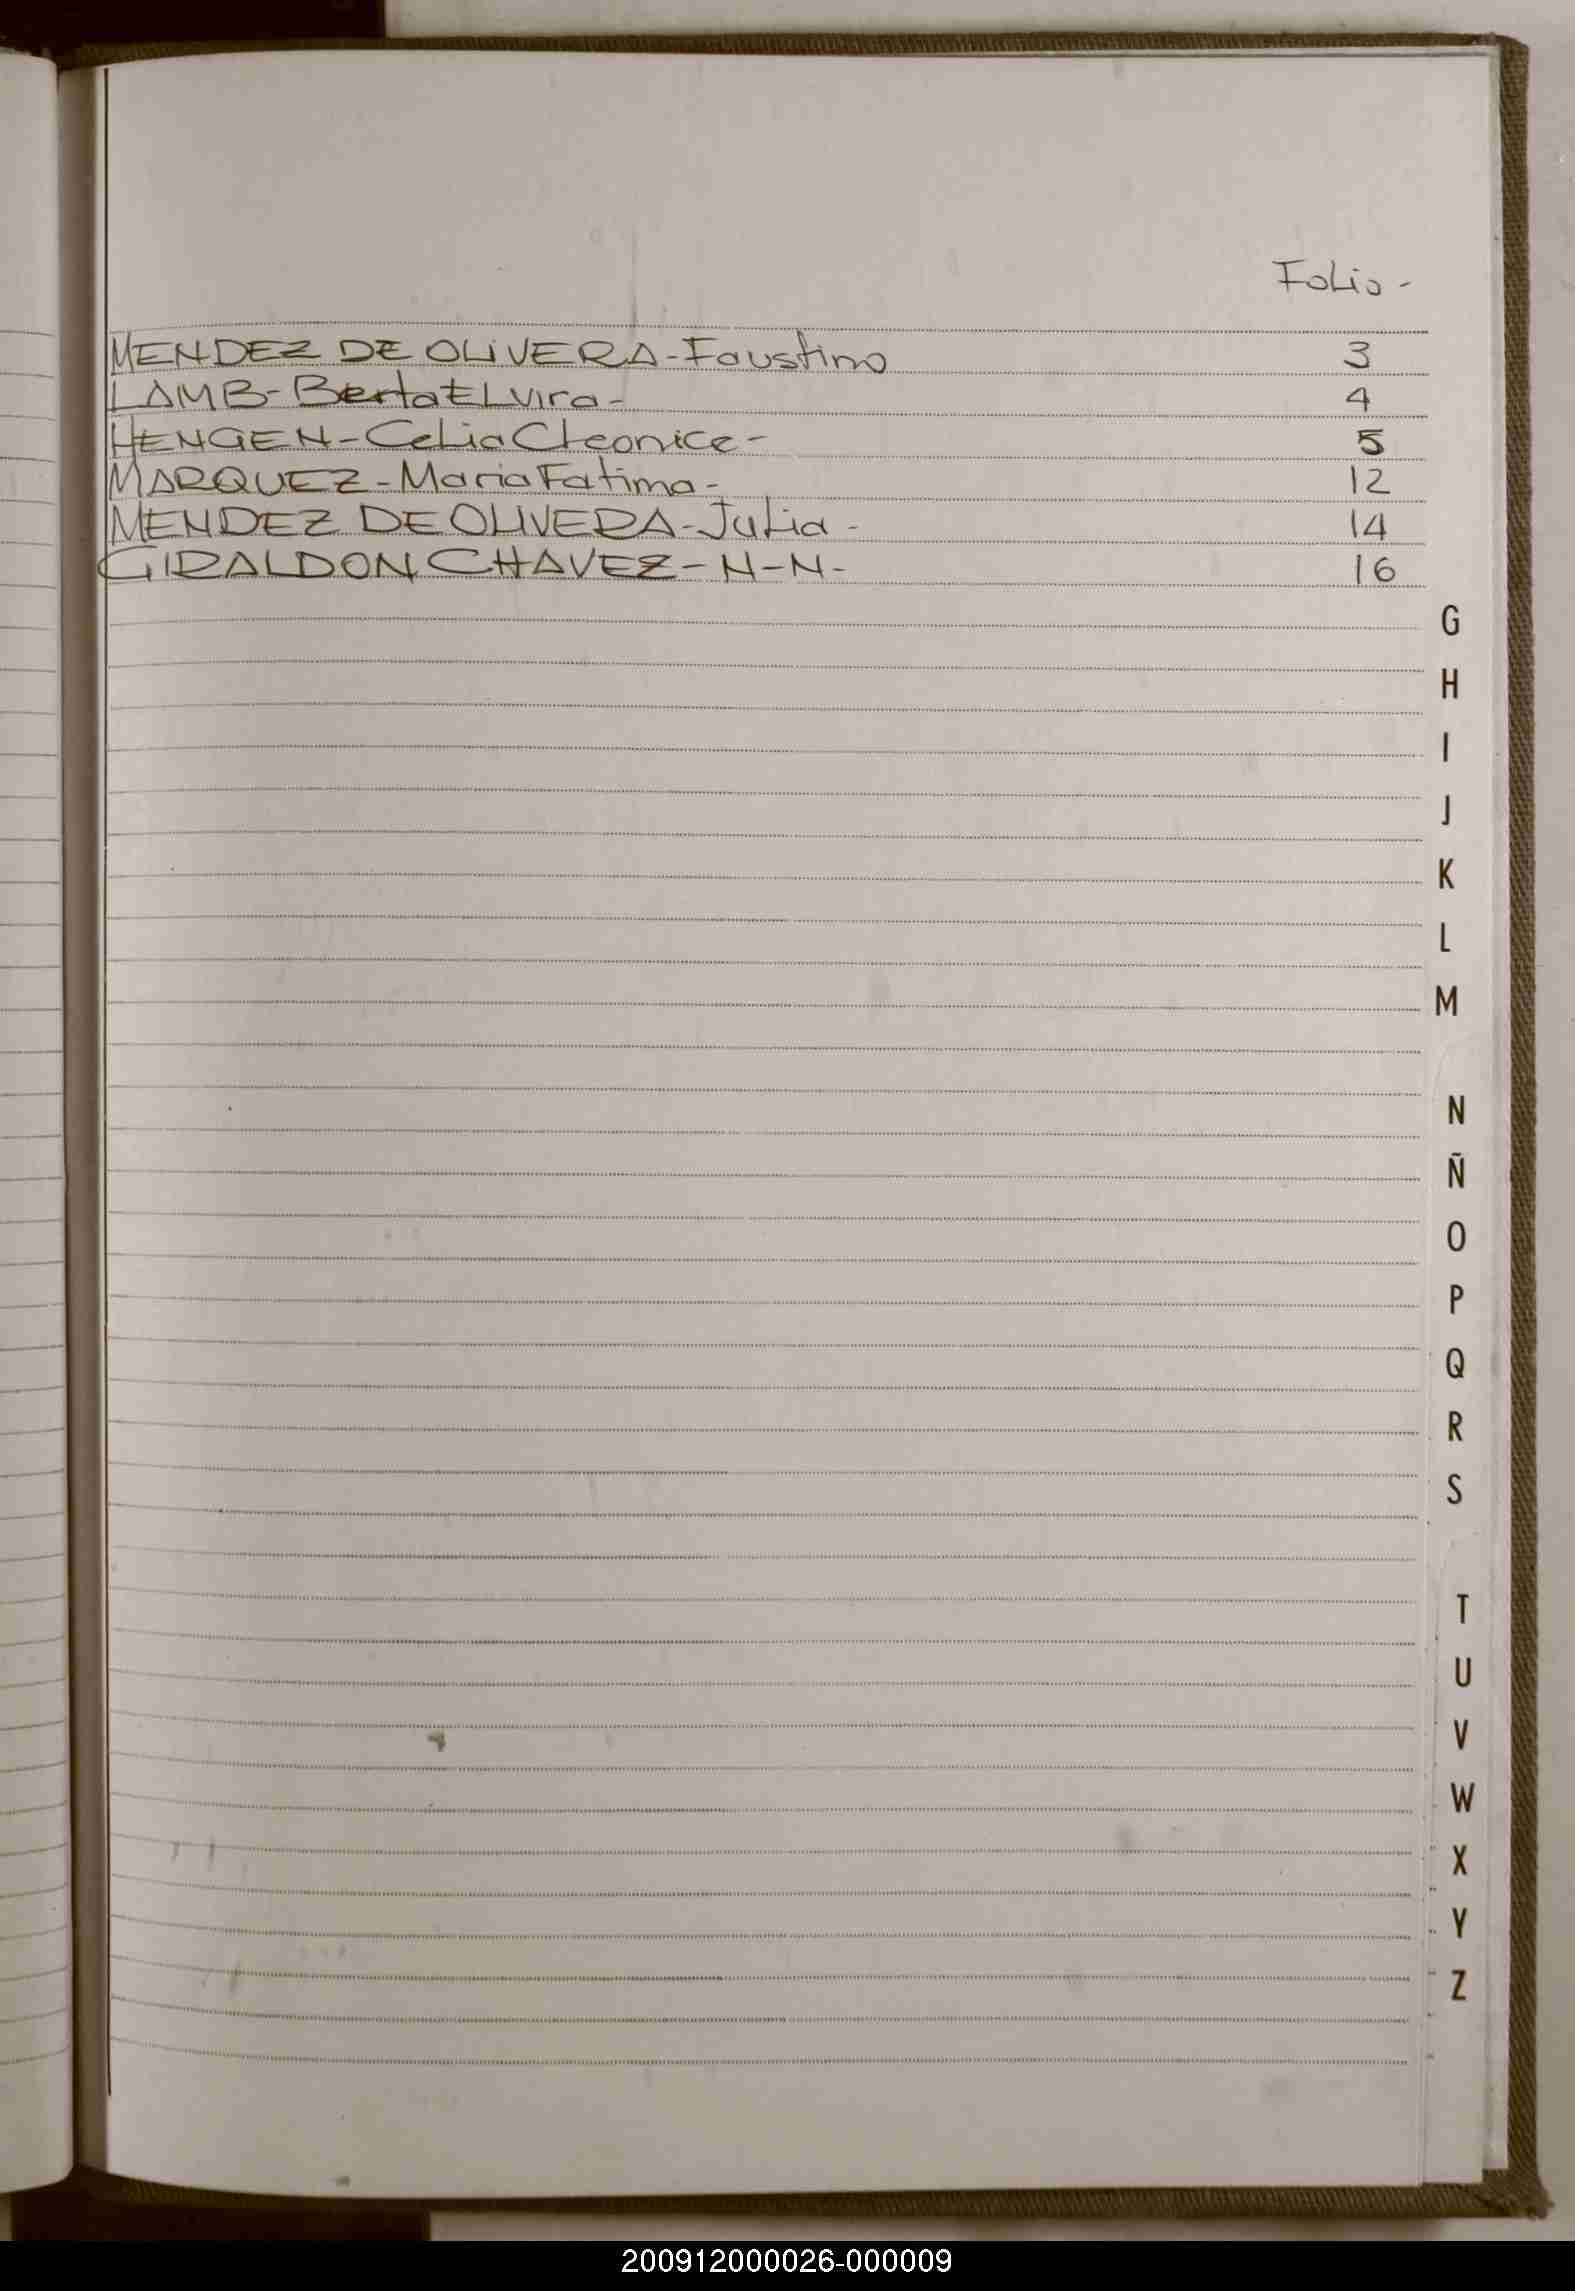 Folio -
MENDEZ DE OLIVERA - Faustino 3
LAMB - Berta Elvira - 4
HENGEN - Celia Cleonice - 5
MARQUEZ - Maria Fatima - 12
MENDEZ DE OLIVERA - Julia - 14
GIRALDON CHAVEZ - N - N - 16
G
H
I
J
K
L
M
N
Ñ
O
P
Q
R
S
T
U
V
W
X
Y
Z
200912000026-000009